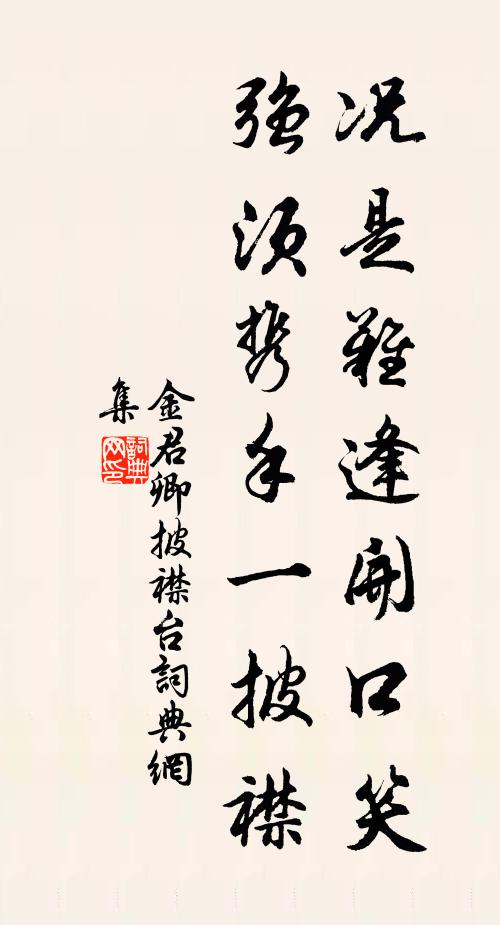 况是难逢開口笑
强须携手一披襟
金君卿披襟台詞典網
集
詞典网印